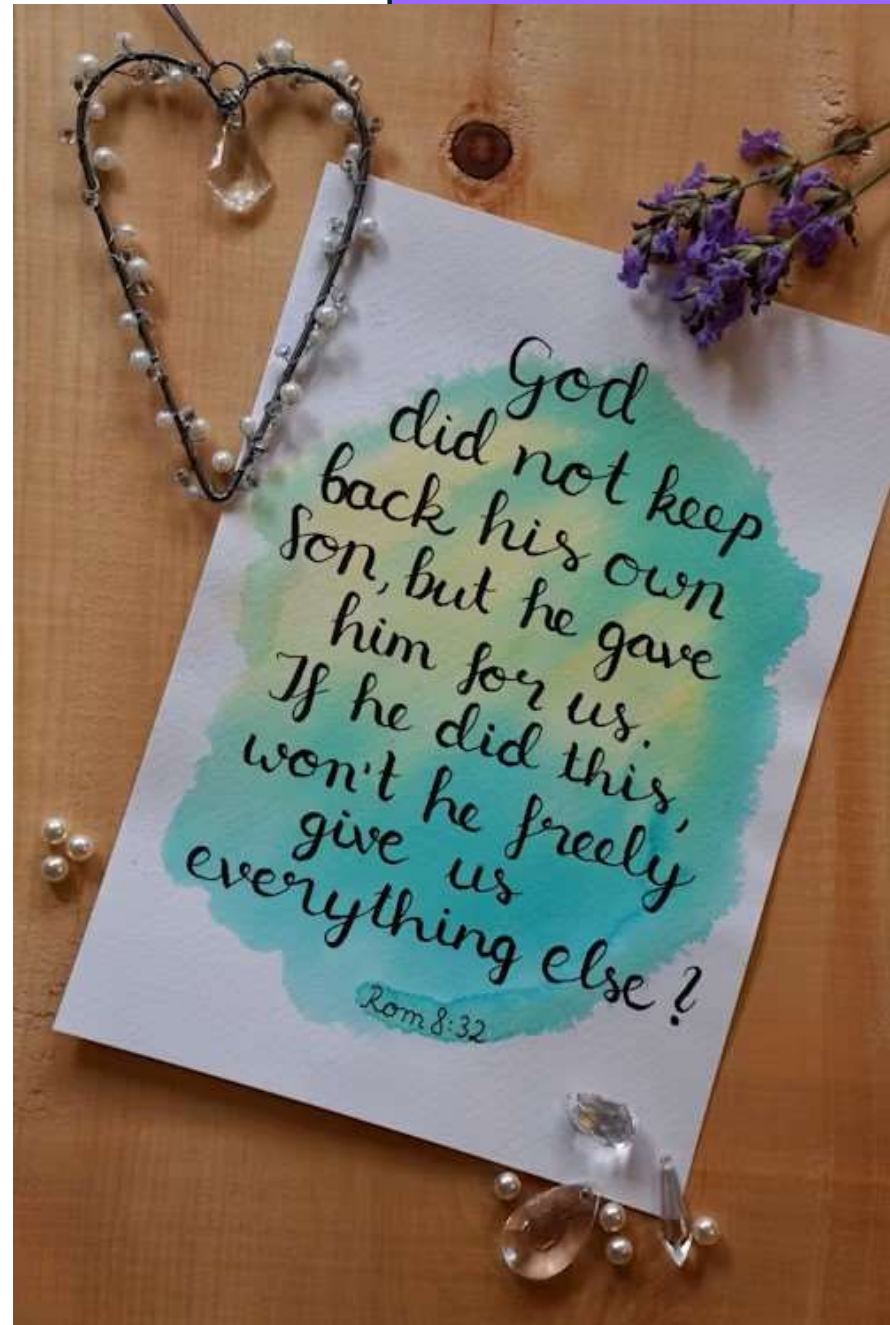 God
did not keep
back his own
son, but he gave
him for us.
If he did this,
won't he freely
give us
everything else?
Rom 8:32